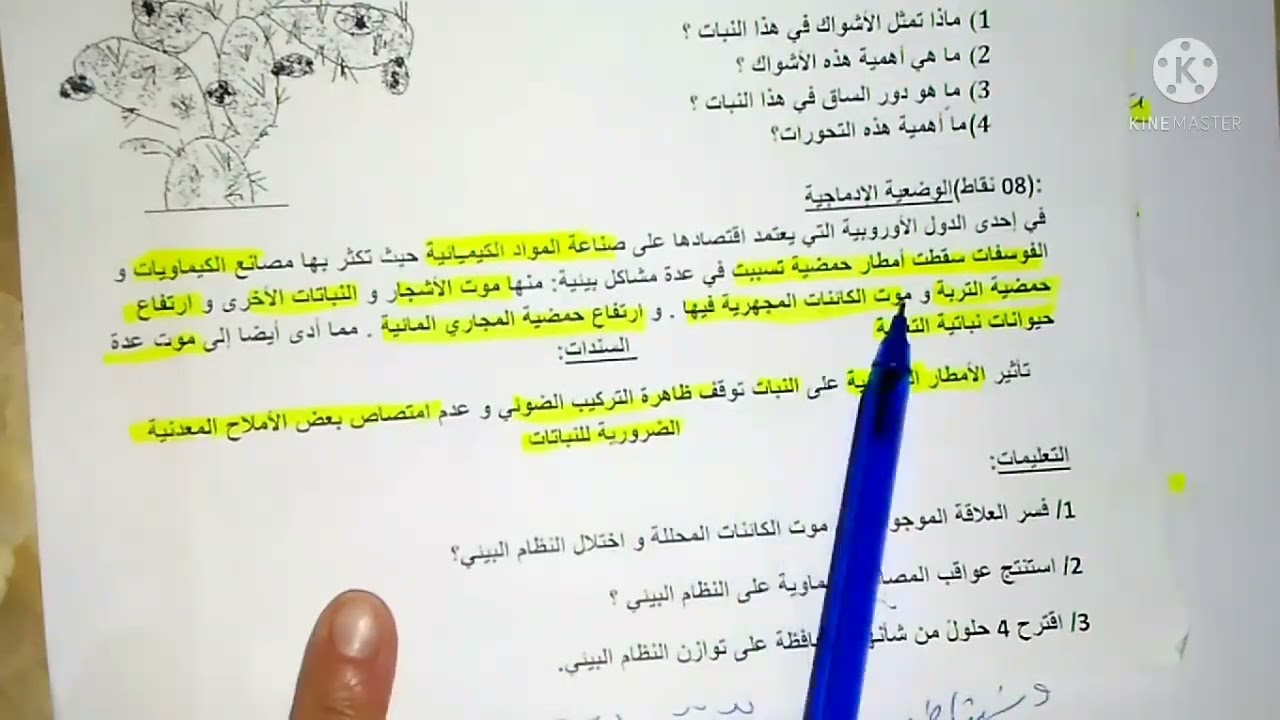 1) ماذا تمثل الأشواك في هذا النبات ؟
2) ما هي أهمية هذه الأشواك ؟
3) ما هو دور الساق في هذا النبات ؟
4) ما أهمية هذه التحورات؟
KINEMASTER
:(08 نقاط)الوضعية الإدماجية
في إحدى الدول الأوروبية التي يعتمد اقتصادها على صناعة المواد الكيميائية حيث تكثر بها مصانع الكيماويات و
الفوسفات سقطت أمطار حمضية تسببت في عدة مشاكل بيئية: منها موت الأشجار و النباتات الأخرى و ارتفاع
حمضية التربة و موت الكائنات المجهرية فيها . و ارتفاع حمضية المجاري المائية . مما أدى أيضا إلى موت عدة
حيوانات نباتية
السندات:
تأثير الأمطار على النبات توقف ظاهرة التركيب الضوئي و عدم امتصاص بعض الأملاح المعدنية
الضرورية للنباتات
التعليمات:
1/ فسر العلاقة موت الكائنات المحللة و اختلال النظام البيئي؟
2/ استنتج عواقب على النظام البيئي ؟
3/ اقترح 4 حلول من على توازن النظام البيئي.